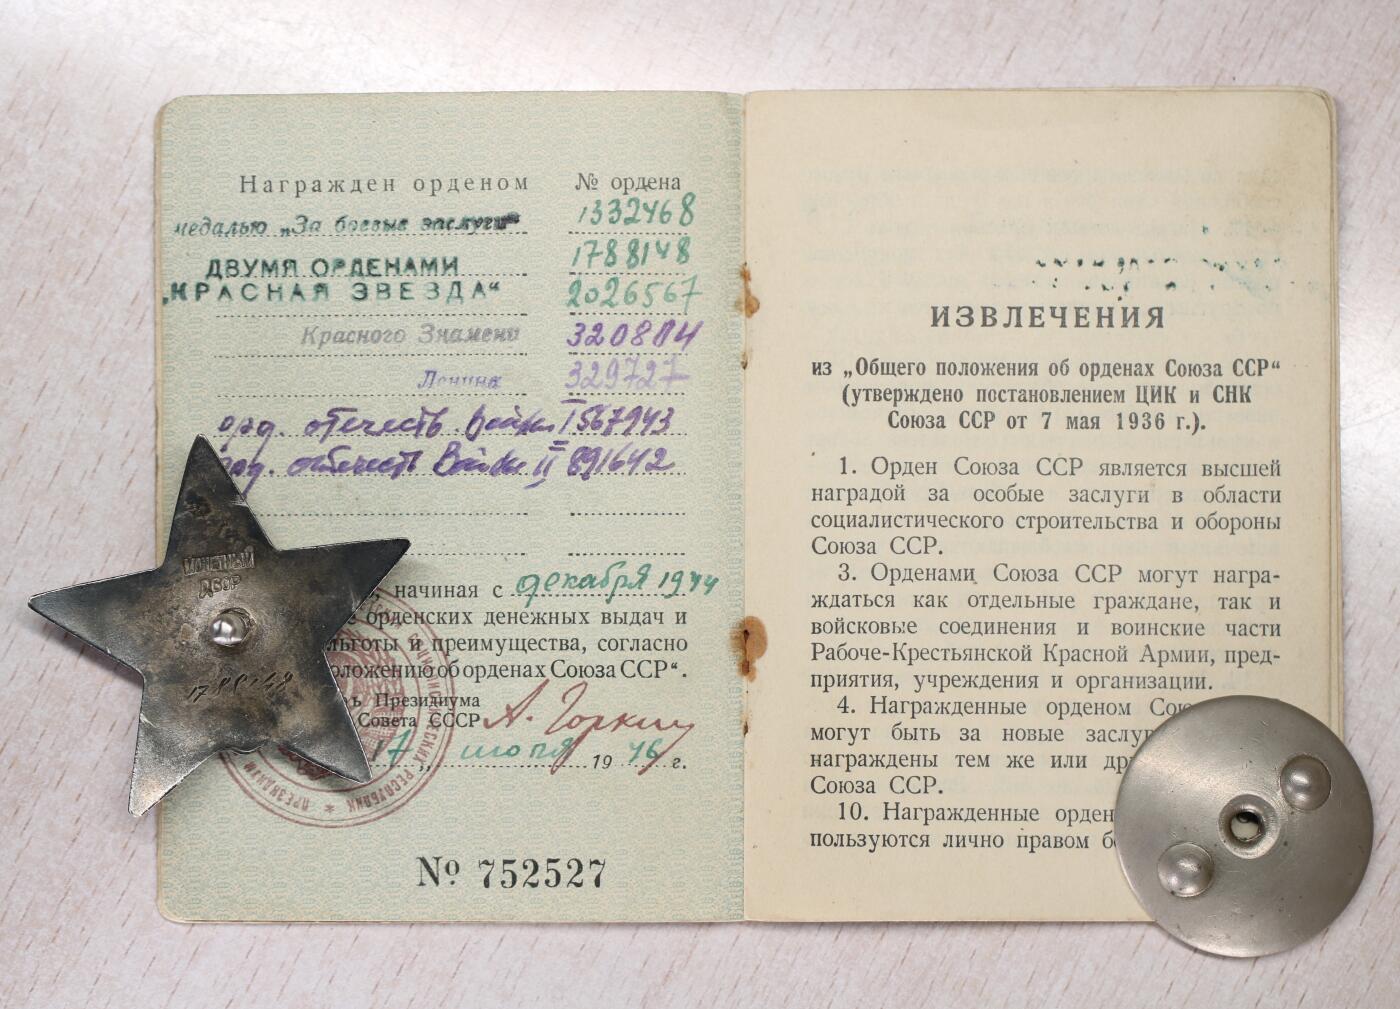 Награжден орденом № ордена
медалью „За боевые заслуги“ 1332468
ДВУМЯ ОРДЕНАМИ 1788148
„КРАСНАЯ ЗВЕЗДА“ 2026567
Красного Знамени 320804
Ленина 329727
орд. отечеств. Войны I 567943
орд. отечеств Войны II 891642
МОНЕТНЫЙ
ДВОР
1788148
начиная с декабря 1944
орденских денежных выдач и
льготы и преимущества, согласно
оложению об орденах Союза ССР“.
ь Президиума
Совета СССР А. Горкин
17 июля 1946 г.
№ 752527
ИЗВЛЕЧЕНИЯ
из „Общего положения об орденах Союза ССР“
(утверждено постановлением ЦИК и СНК
Союза ССР от 7 мая 1936 г.).
1. Орден Союза ССР является высшей
наградой за особые заслуги в области
социалистического строительства и обороны
Союза ССР.
3. Орденами Союза ССР могут награ-
ждаться как отдельные граждане, так и
войсковые соединения и воинские части
Рабоче-Крестьянской Красной Армии, пред-
приятия, учреждения и организации.
4. Награжденные орденом Сою
могут быть за новые заслуг
награждены тем же или др
Союза ССР.
10. Награжденные орден
пользуются лично правом б